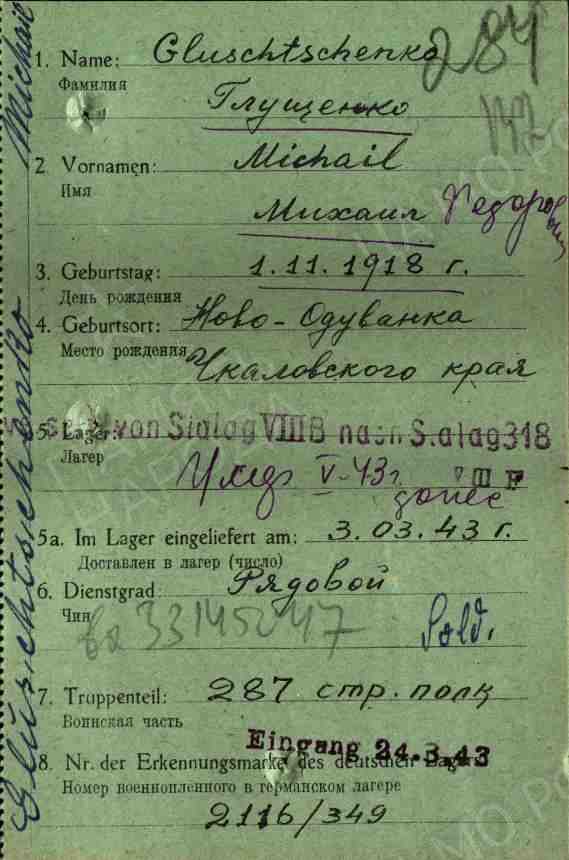 Michail
Gluschtschenko
1. Name: Gluschtschenko
Фамилия
Глущенко
284
147
2 Vornamen: Michail
Имя
Михаил Федорович
3. Geburtstag: 1.11.1918 г.
День рождения
4. Geburtsort: Ново-Одуванка
Место рождения
Чкаловского края
von Stalag VIII B nach S.alag 318
5. Lager:
Лагер
V-43г. VIII F
донес
5a. Im Lager eingeliefert am: 3.03.43 г.
Доставлен в лагер (число)
6. Dienstgrad: Рядовой
Чин
Sold.
7. Truppenteil: 287 стр. полк
Воинская часть
Eingang 24.3.43
8. Nr. der Erkennungsmarke des deutschen Lagers
Номер военнопленного в германском лагере
2116/349